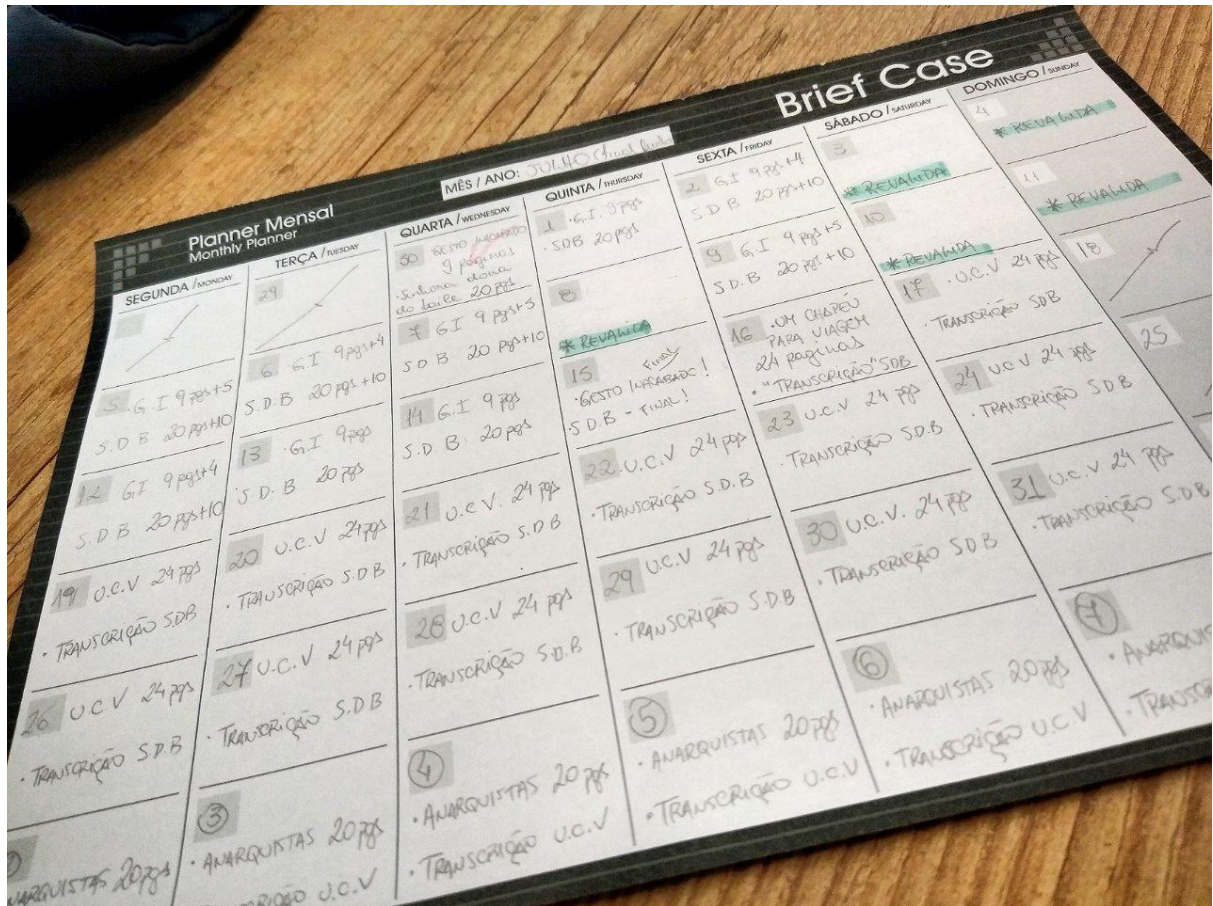 Brief Case
Planner Mensal
Monthly Planner
MÊS / ANO: JULHO
SEGUNDA / MONDAY
TERÇA / TUESDAY
QUARTA / WEDNESDAY
QUINTA / THURSDAY
SEXTA / FRIDAY
SÁBADO / SATURDAY
DOMINGO / SUNDAY
29
30 GESTO INACABADO
9 páginas
· Senhora dona
do baile 20 pgs
1 · G.I. 9 pgs
· SDB 20 pgs
2 G.I 9 pgs+4
S D B 20 pgs+10
3
* REVALIDA
4
* REVALIDA
5 · G.I 9 pgs+5
S.D B 20 pgs+10
6 · G.I 9 pgs+4
S.D.B 20 pgs+10
7 G.I 9 pgs+5
S D B 20 pgs+10
8
* REVALIDA
9 G.I 9 pgs+5
S.D.B 20 pgs+10
10
* REVALIDA
11
* REVALIDA
12 GI 9 pgs+4
S.D B 20 pgs+10
13 · G.I 9 pgs
S.D.B 20 pgs
14 G.I 9 pgs
S.D.B. 20 pgs
15 FINAL
· GESTO INACABADO!
· S.D.B - FINAL!
16 · UM CHAPEU
PARA VIAGEM
24 paginas
· "TRANSCRIÇÃO" SDB
17 · U.C.V 24 pgs
· TRANSCRIÇÃO SDB
18
19 U.C.V 24 pgs
· TRANSCRIÇÃO SDB
20 U.C.V 24 pgs
· TRANSCRIÇÃO S.D.B
21 U.C.V. 24 pgs
· TRANSCRIÇÃO S.D.B
22 · U.C.V 24 pgs
· TRANSCRIÇÃO S.D.B
23 U.C.V 24 pgs
· TRANSCRIÇÃO S.D.B
24 U.C.V 24 pgs
· TRANSCRIÇÃO S.D.B
25
26 U.C.V 24 pgs
· TRANSCRIÇÃO S.D.B
27 U.C.V 24 pgs
· TRANSCRIÇÃO S.D.B
28 U.C.V 24 pgs
· TRANSCRIÇÃO S.D.B
29 U.C.V 24 pgs
· TRANSCRIÇÃO S.D.B
30 U.C.V. 24 pgs
· TRANSCRIÇÃO SDB
31 U.C.V 24 pgs
· TRANSCRIÇÃO S.D.B
20 pgs
3
· ANARQUISTAS 20 pgs
U.C.V
4
· ANARQUISTAS 20 pgs
· TRANSCRIÇÃO U.C.V
5
· ANARQUISTAS 20 pgs
· TRANSCRIÇÃO U.C.V
6
· ANARQUISTAS 20 pgs
· TRANSCRIÇÃO U.C.V
7